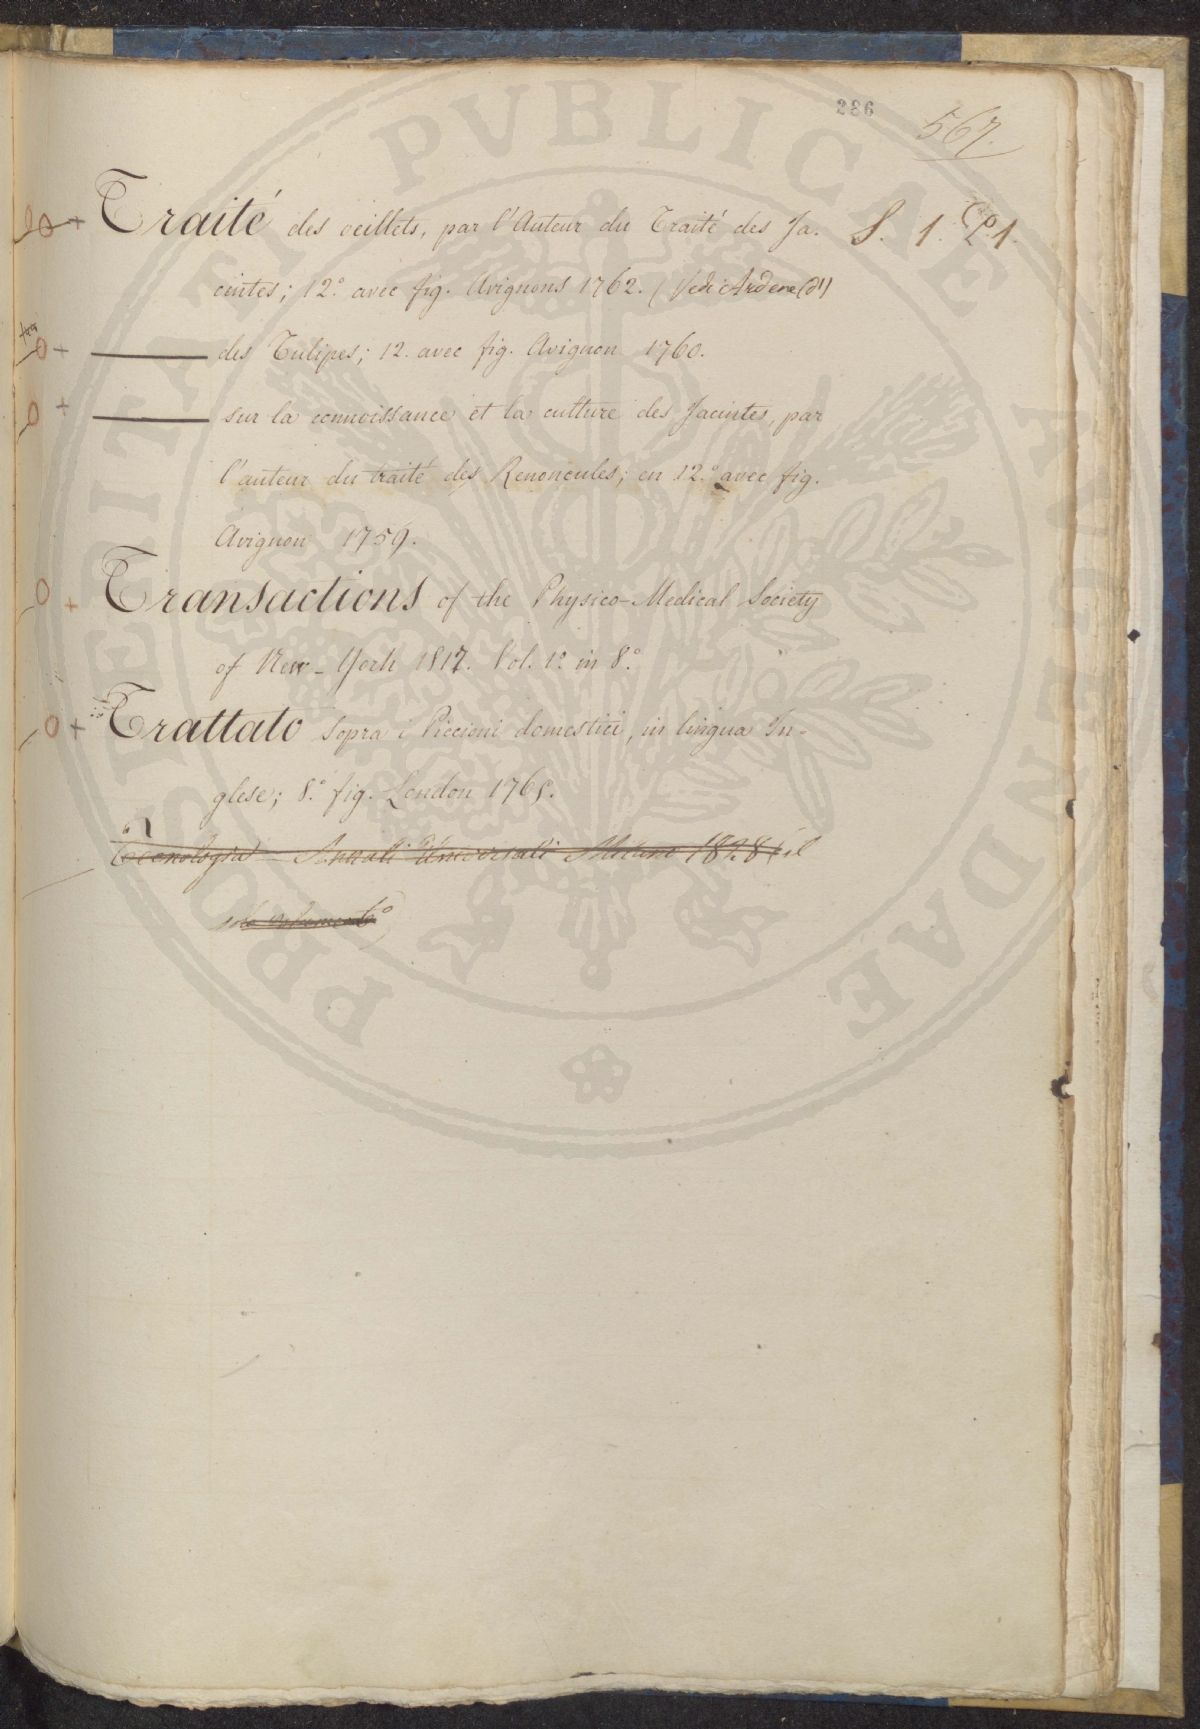 286
567.
Traité des oeillets, par l'Auteur du Traité des Ja. S. 1.
cintes; 12.° avec fig. Avignons 1762. (Vedi Ardene (d')
des Tulipes; 12. avec fig. Avignon 1760.
sur la connoissance et la culture des Jacintes, par
l'auteur du traité des Renoncules; en 12.° avec fig.
Avignon 1759.
Transactions of the Physico-Medical Society
of New-York 1817. Vol. 1.° in 8.°
Trattato sopra i Piccioni domestici, in lingua In-
glese; 8.° fig. London 1765.
Tecnologia Annali Universali Milano 1828 (il
solo
PROSPERITATI PVBLICAE AVGENDAE